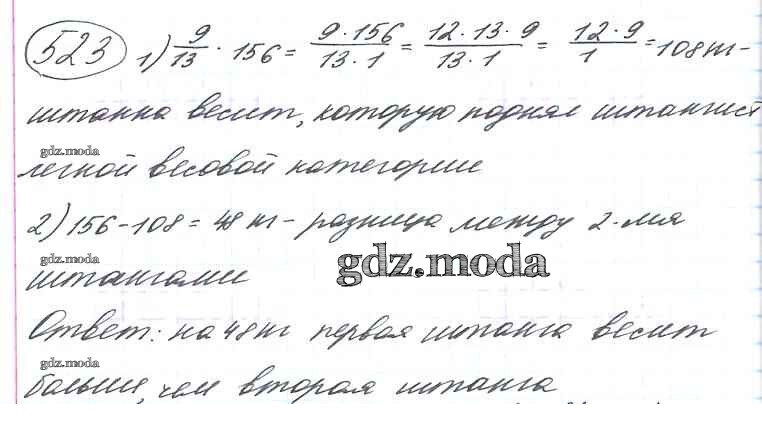 523 1) 9/13 · 156 = 9·156/13·1 = 12·13·9/13·1 = 12·9/1 = 108 кг -
штанга весит, которую поднял штангист
gdz.moda
легкой весовой категории
2) 156-108 = 48 кг - разница между 2-мя
gdz.moda
штангами
gdz.moda
Ответ: на 48 кг первая штанга весит
gdz.moda
больше, чем вторая штанга